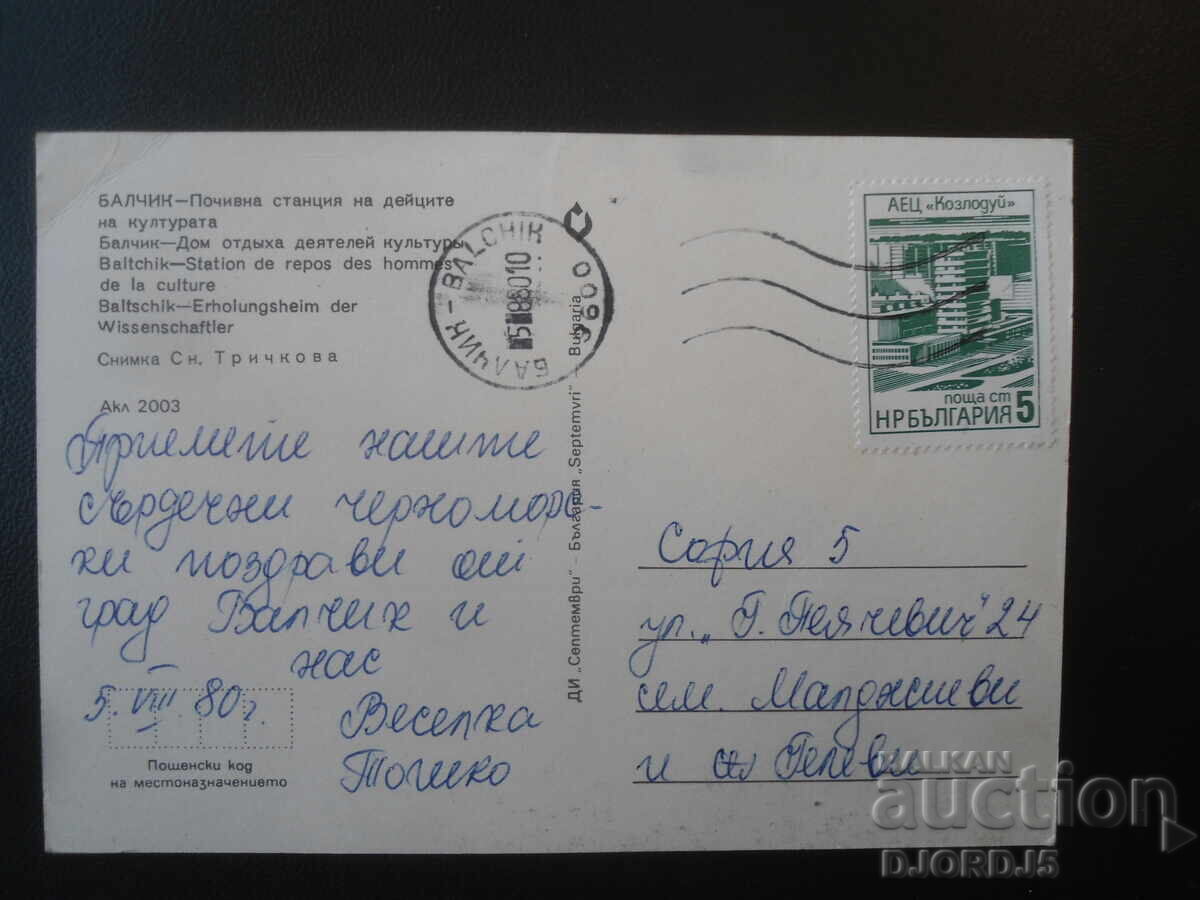 БАЛЧИК—Почивна станция на дейците
на културата
Балчик—Дом отдыха деятелей культуры
Baltchik—Station de repos des hommes
de la culture
Baltschik—Erholungsheim der
Wissenschaftler
Снимка Сн. Тричкова
Акл 2003
Приемете нашите
сърдечни черноморс-
ки поздрави от
град Балчик и
нас
5. VIII 80 г.
Веселка
Тошко
Пощенски код
на местоназначението
БАЛЧИК - BALCHIK
9600
ДИ „Септември" – България „Septemvri" – Bulgaria
АЕЦ «Козлодуй»
поща ст
НРБЪЛГАРИЯ 5
София 5
ул. „Г. Пеячевич" 24
сем. Марджиеви
и Гелеви
BALKAN
auction
DJORDJ5